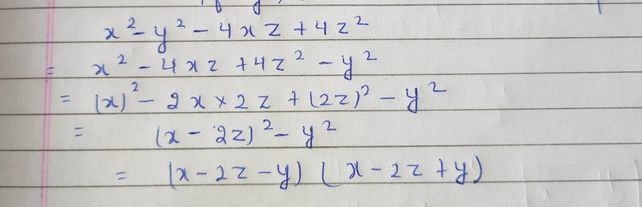 x² - y² - 4xz + 4z²
= x² - 4xz + 4z² - y²
= (x)² - 2x × 2z + (2z)² - y²
= (x - 2z)² - y²
= (x - 2z - y) (x - 2z + y)